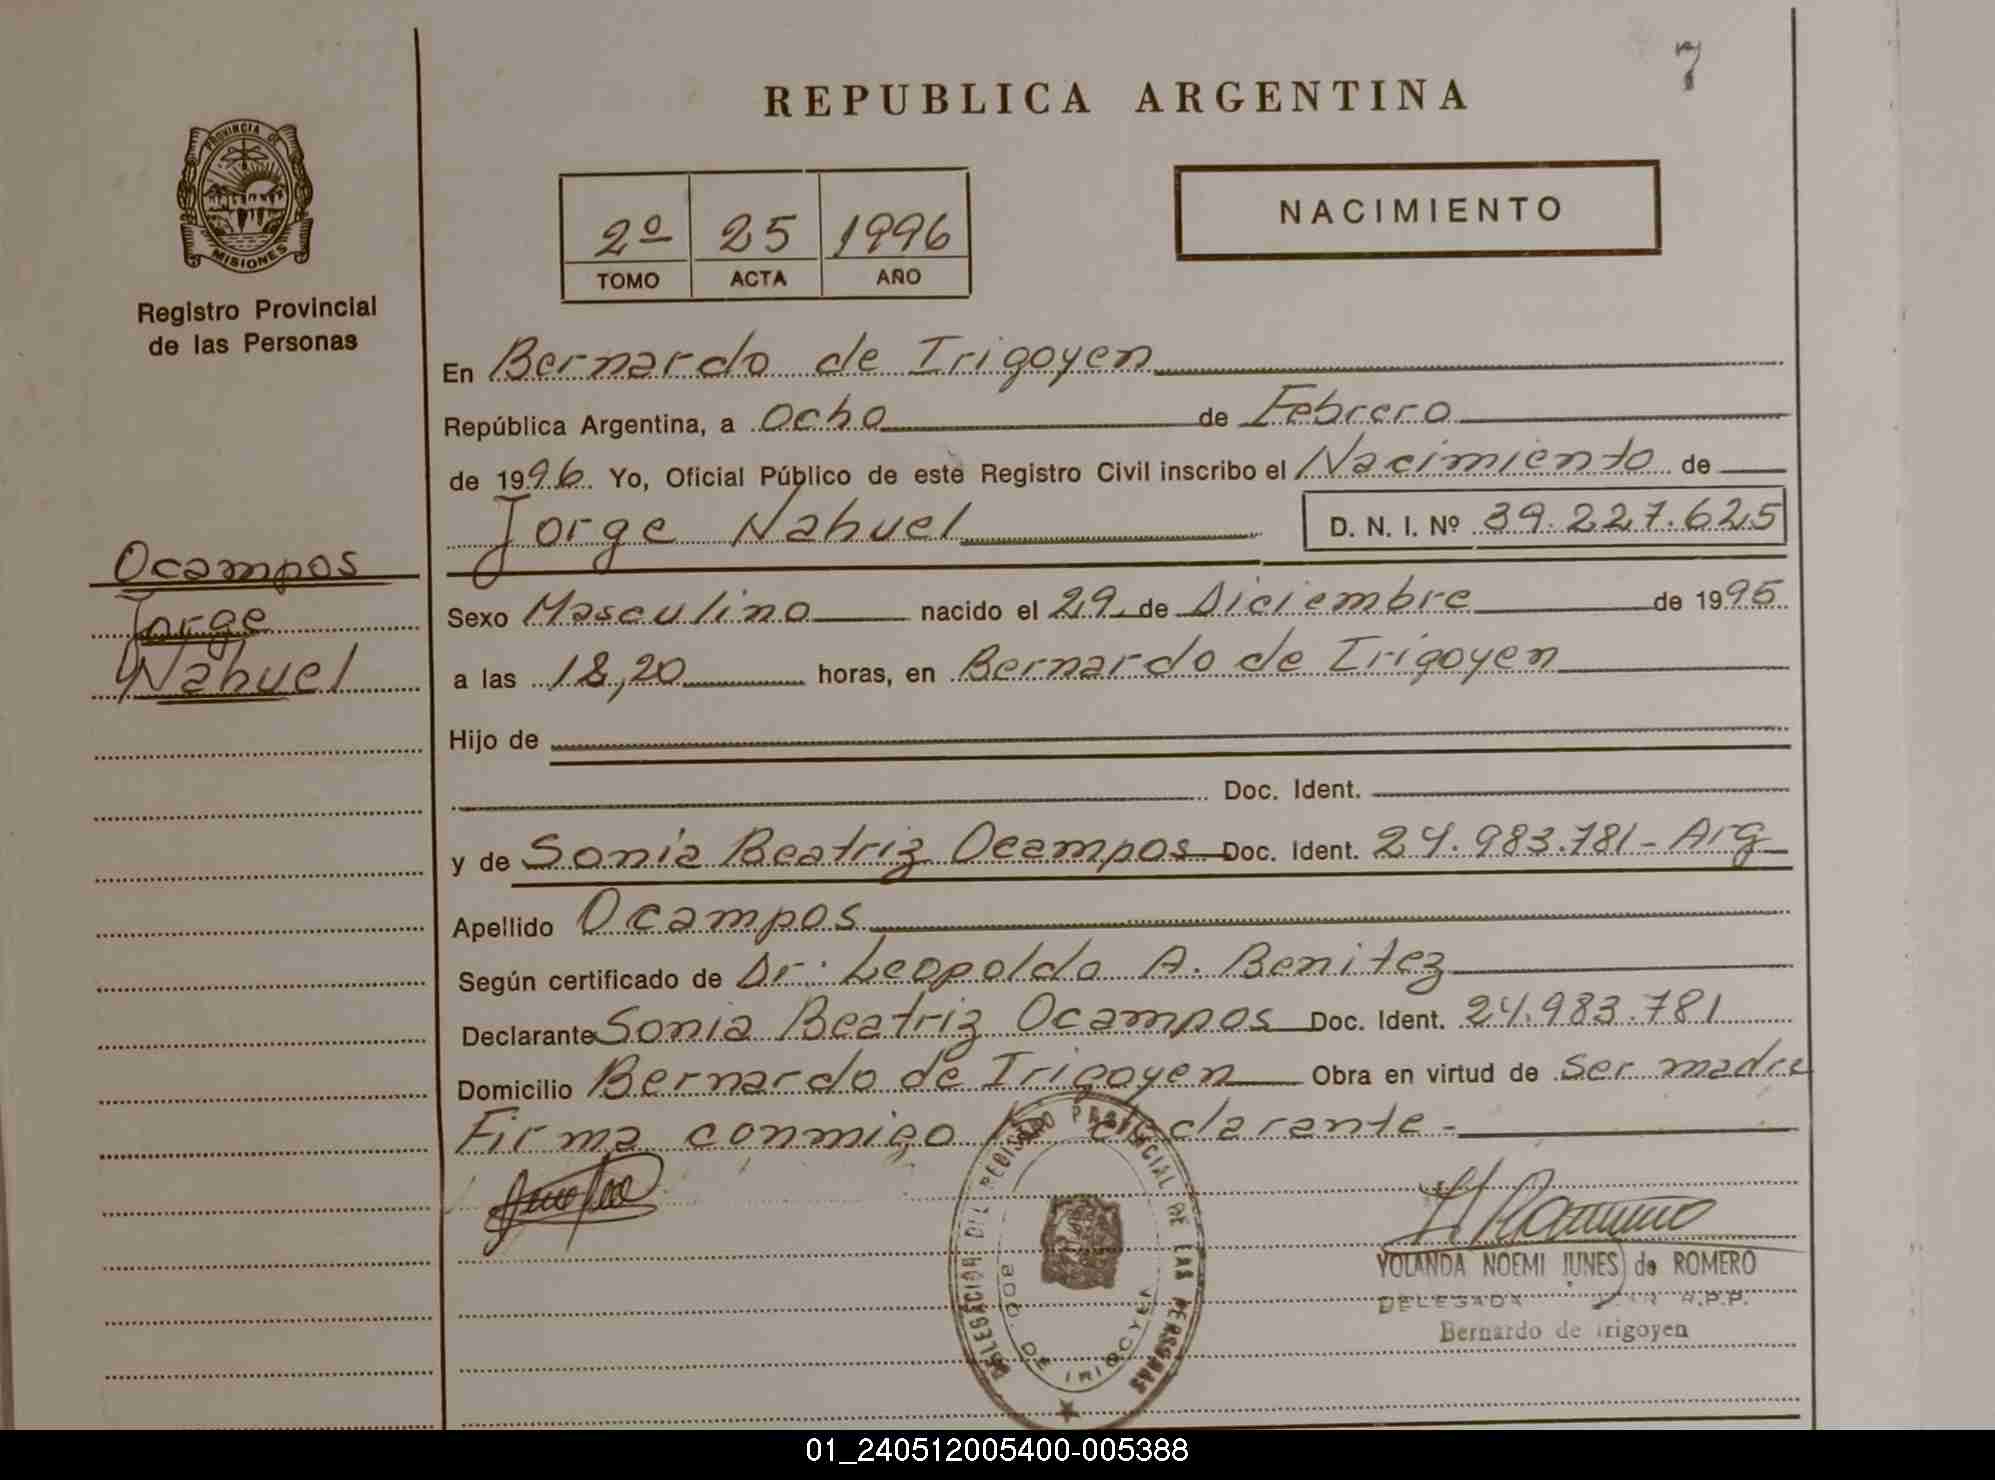 7
REPUBLICA ARGENTINA
PROVINCIA DE
MISIONES
Registro Provincial
de las Personas
2º 25 1996
TOMO ACTA AÑO
NACIMIENTO
En Bernardo de Irigoyen
República Argentina, a Ocho de Febrero
de 1996 Yo, Oficial Público de este Registro Civil inscribo el Nacimiento de
Jorge Nahuel D. N. I. Nº 39.227.625
Ocampos
Jorge
Nahuel
Sexo Masculino nacido el 29 de Diciembre de 1995
a las 18,20 horas, en Bernardo de Irigoyen
Hijo de
Doc. Ident.
y de Sonia Beatriz Ocampos Doc. Ident. 24.983.781 - Arg
Apellido Ocampos
Según certificado de Dr. Leopoldo A. Benitez
Declarante Sonia Beatriz Ocampos Doc. Ident. 24.983.781
Domicilio Bernardo de Irigoyen Obra en virtud de ser madre
Firma conmigo la declarante.-
DELEGACION DEL REGISTRO PROVINCIAL DE LAS PERSONAS
BDO. DE IRIGOYEN
YOLANDA NOEMI IUNES de ROMERO
DELEGADA R.P.P.
Bernardo de Irigoyen
01_240512005400-005388